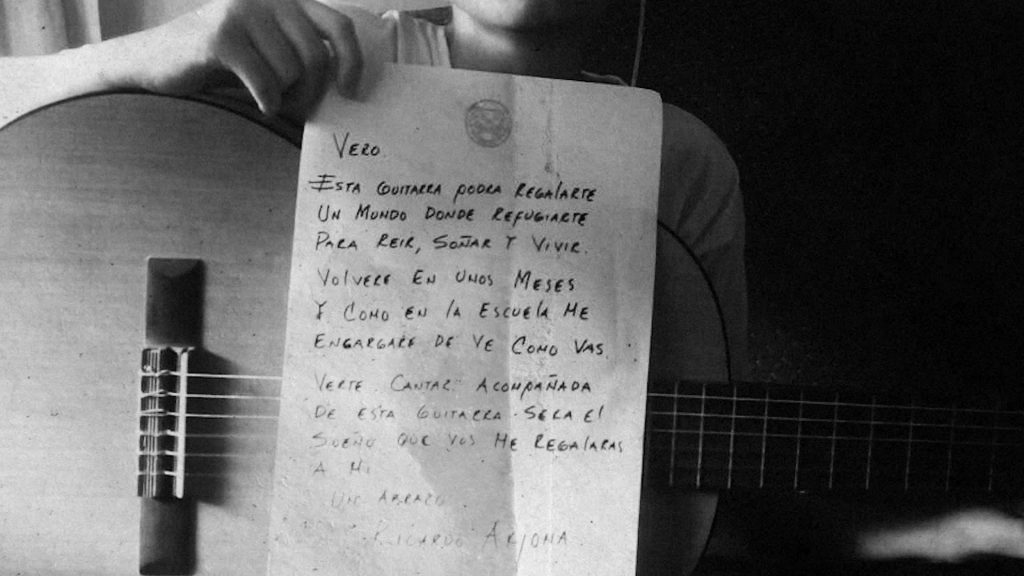 VERO
ESTA GUITARRA PODRA REGALARTE
UN MUNDO DONDE REFUGIARTE
PARA REIR, SOÑAR Y VIVIR.
VOLVERE EN UNOS MESES
Y COMO EN LA ESCUELA ME
ENGARGARE DE VE COMO VAS
VERTE CANTAR ACOMPAÑADA
DE ESTA GUITARRA SERA EL
SUEÑO QUE VOS ME REGALARAS
A MI
UN ABRAZO
RICARDO ARJONA